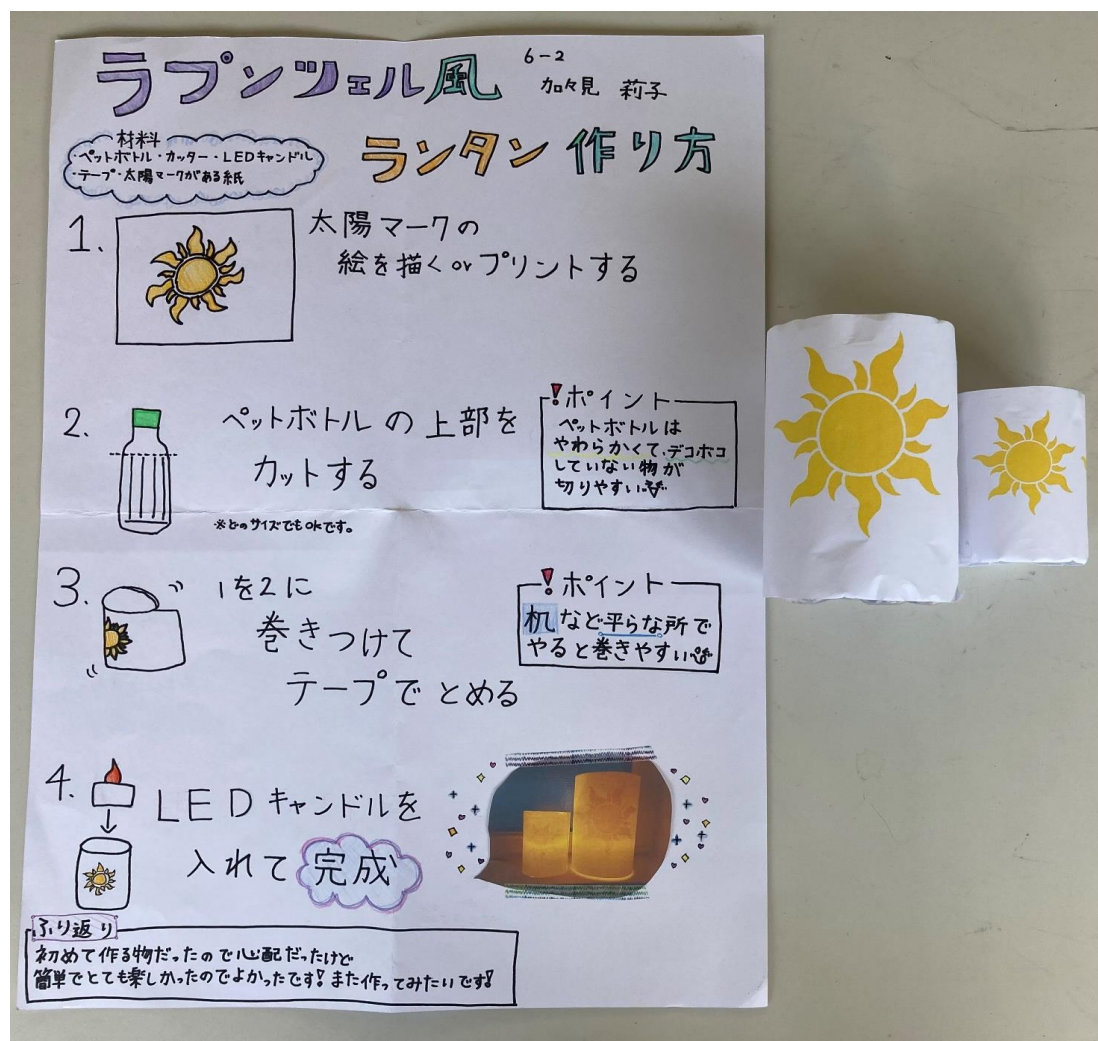 ラプンツェル風
6-2
加々見 莉子
ランタン作り方
材料
・ペットボトル・カッター・LEDキャンドル
・テープ・太陽マークがある紙
1.
太陽マークの
絵を描くorプリントする
2.
ペットボトルの上部を
カットする
※どのサイズでもOKです。
!ポイント
ペットボトルは
やわらかくて、デコボコ
していない物が
切りやすい
3.
1を2に
巻きつけて
テープでとめる
!ポイント
机など平らな所で
やると巻きやすい
4.
LEDキャンドルを
入れて完成
ふり返り
初めて作る物だったので心配だったけど
簡単でとても楽しかったのでよかったです!また作ってみたいです!